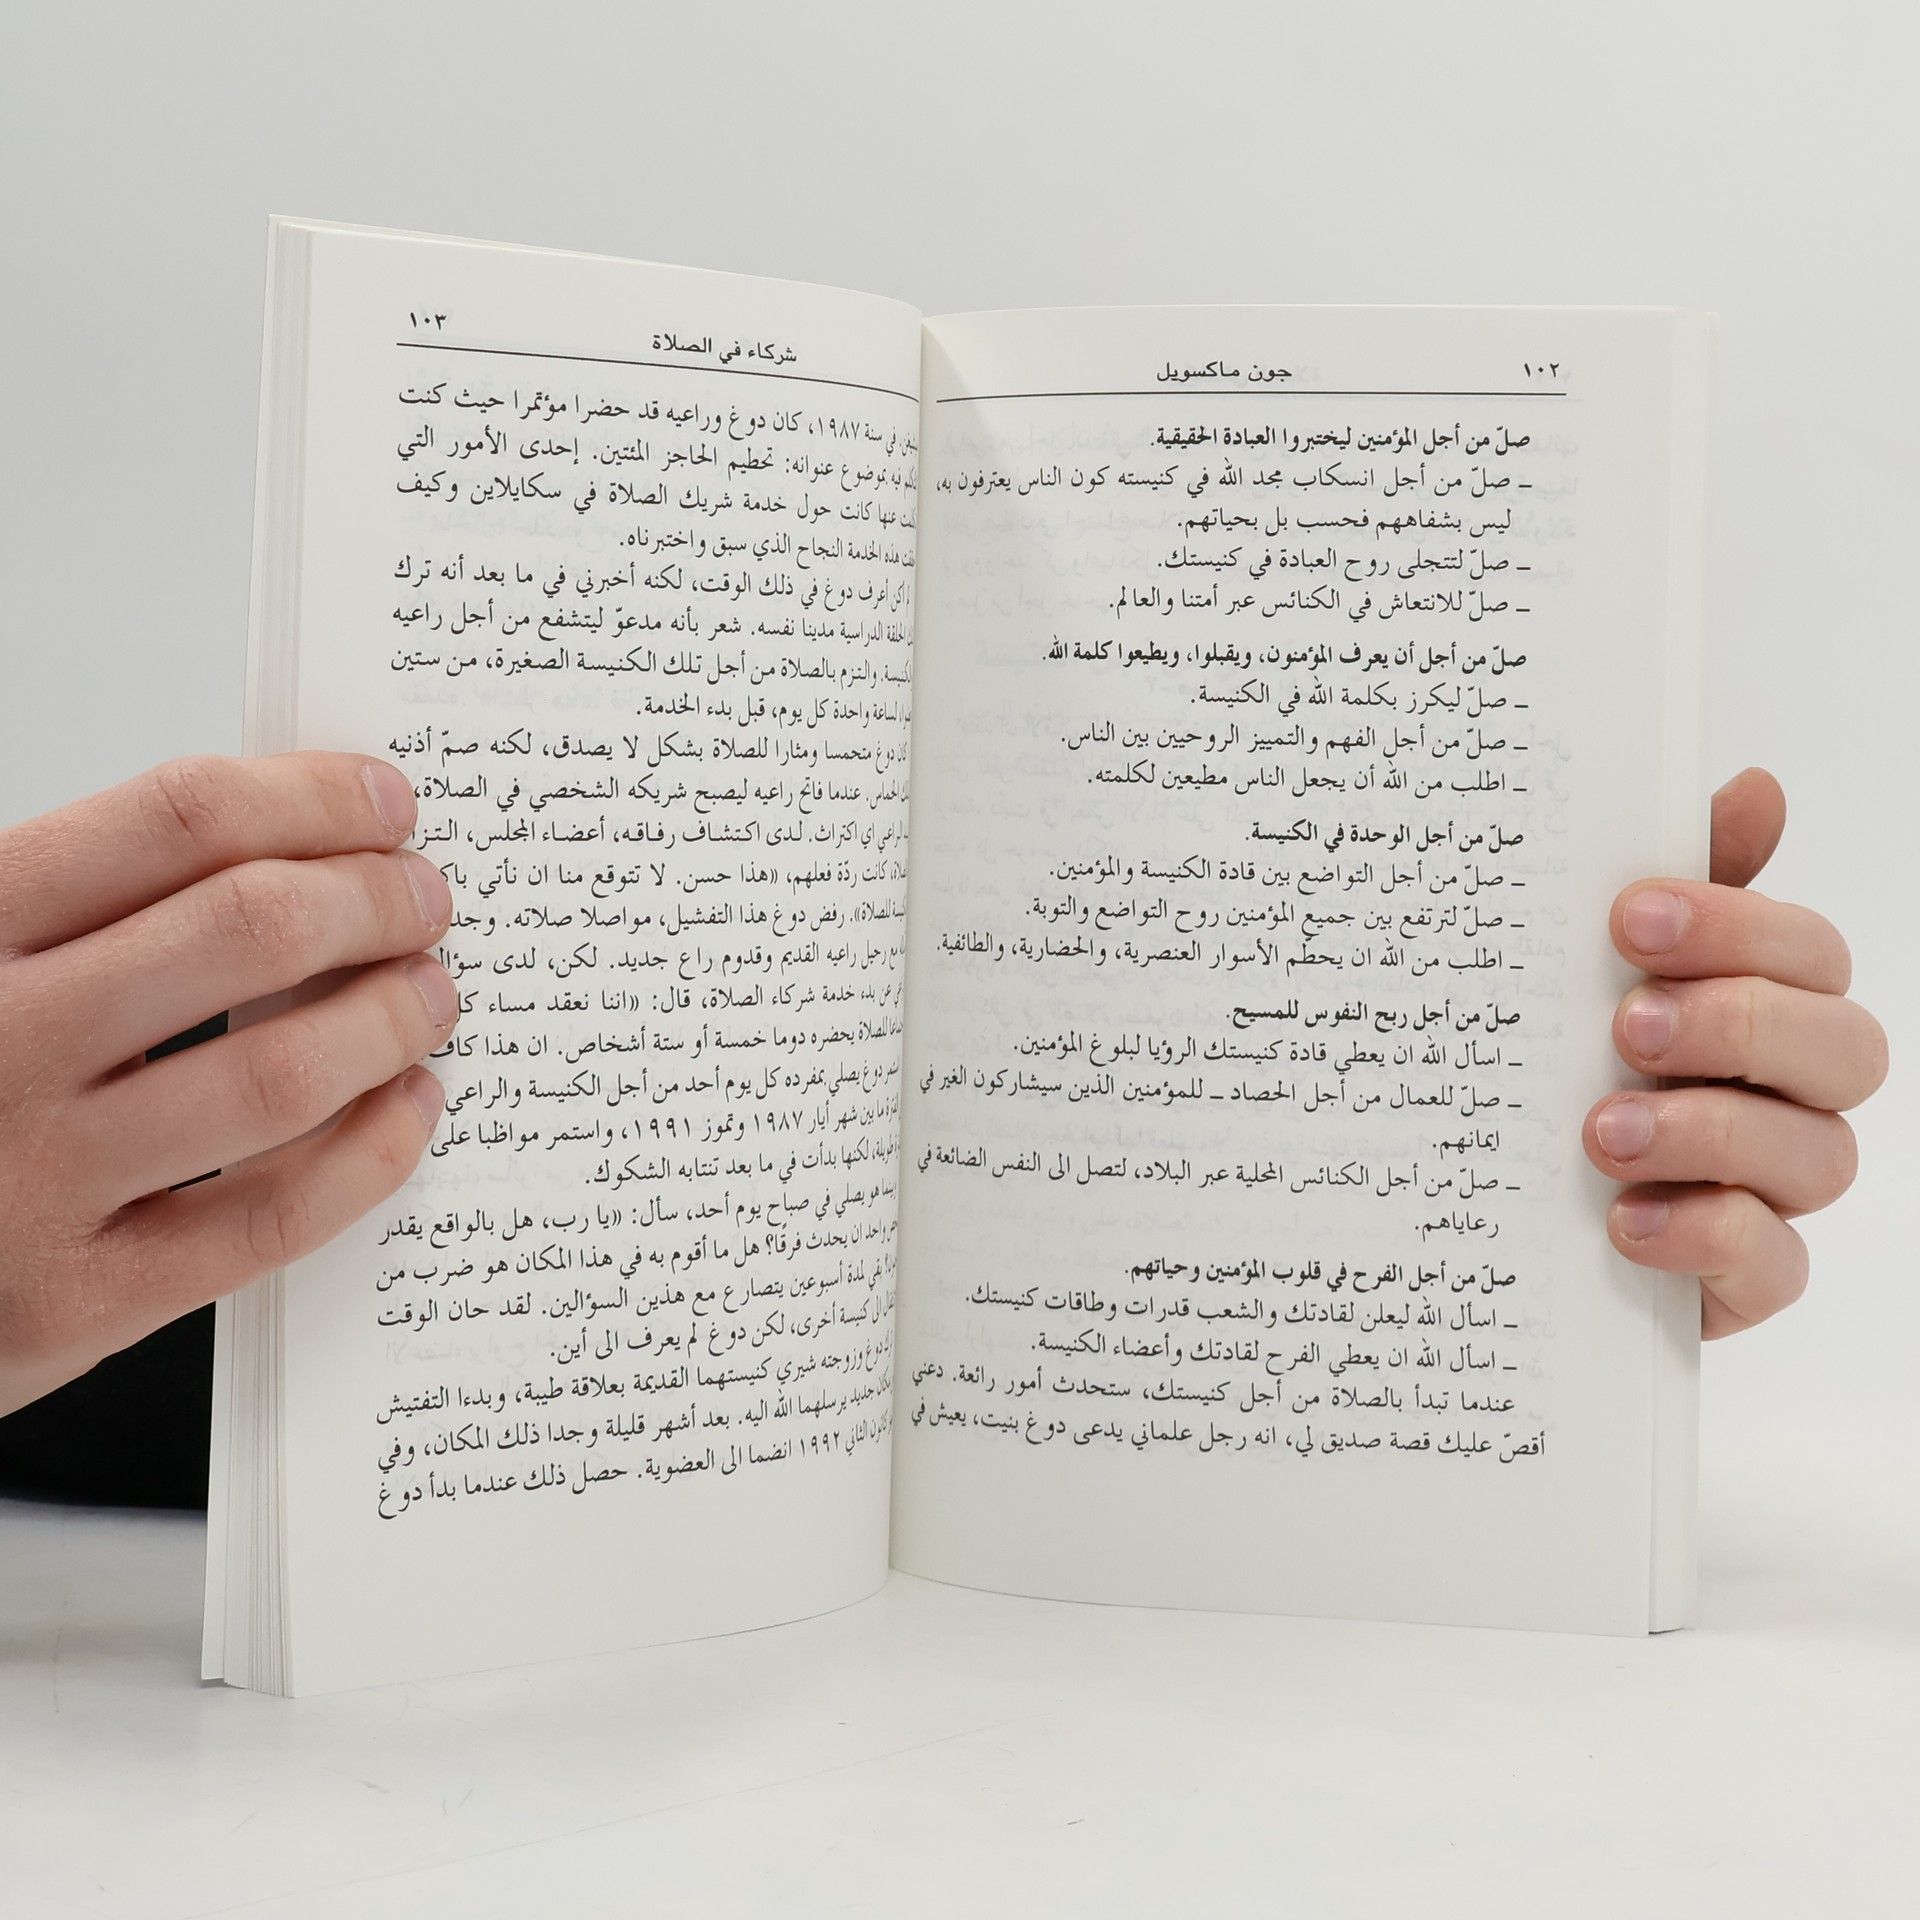 ١٠٢
جون ماكسويل
صلّ من أجل المؤمنين ليختبروا العبادة الحقيقية.
ـ صلّ من أجل انسكاب مجد الله في كنيسته كون الناس يعترفون به،
ليس بشفاههم فحسب بل بحياتهم.
ـ صلّ لتتجلى روح العبادة في كنيستك.
ـ صلّ للانتعاش في الكنائس عبر أمتنا والعالم.
صلّ من أجل أن يعرف المؤمنون، ويقبلوا، ويطيعوا كلمة الله.
ـ صلّ ليكرز بكلمة الله في الكنيسة.
ـ صلّ من أجل الفهم والتمييز الروحيين بين الناس.
ـ اطلب من الله أن يجعل الناس مطيعين لكلمته.
صلّ من أجل الوحدة في الكنيسة.
ـ صلّ من أجل التواضع بين قادة الكنيسة والمؤمنين.
ـ صلّ لترتفع بين جميع المؤمنين روح التواضع والتوبة.
ـ اطلب من الله ان يحطّم الأسوار العنصرية، والحضارية، والطائفية.
صلّ من أجل ربح النفوس للمسيح.
ـ اسأل الله ان يعطي قادة كنيستك الرؤيا لبلوغ المؤمنين.
ـ صلّ للعمال من أجل الحصاد ـ للمؤمنين الذين سيشاركون الغير في
ايمانهم.
ـ صلّ من أجل الكنائس المحلية عبر البلاد، لتصل الى النفس الضائعة في
رعاياهم.
صلّ من أجل الفرح في قلوب المؤمنين وحياتهم.
ـ اسأل الله ليعلن لقادتك والشعب قدرات وطاقات كنيستك.
ـ اسأل الله ان يعطي الفرح لقادتك وأعضاء الكنيسة.
عندما تبدأ بالصلاة من أجل كنيستك، ستحدث أمور رائعة. دعني
أقصّ عليك قصة صديق لي، انه رجل علماني يدعى دوغ بنيت، يعيش في
شركاء في الصلاة
١٠٣
في سنة ١٩٨٧، كان دوغ وراعيه قد حضرا مؤتمرا حيث كنت
فيه بموضوع عنوانه: تحطيم الحاجز المئتين. إحدى الأمور التي
عنها كانت حول خدمة شريك الصلاة في سكايلاين وكيف
هذه الخدمة النجاح الذي سبق واختبرناه.
لم أكن أعرف دوغ في ذلك الوقت، لكنه أخبرني في ما بعد أنه ترك
الحلقة الدراسية مدينا نفسه. شعر بأنه مدعوّ ليتشفع من أجل راعيه
والتزم بالصلاة من أجل تلك الكنيسة الصغيرة، من ستين
لساعة واحدة كل يوم، قبل بدء الخدمة.
كان دوغ متحمسا ومثارا للصلاة بشكل لا يصدق، لكنه صمّ أذنيه
الحماس. عندما فاتح راعيه ليصبح شريكه الشخصي في الصلاة،
الراعي اي اكتراث. لدى اكتشاف رفاقه، أعضاء المجلس،
كانت ردّة فعلهم، «هذا حسن. لا تتوقع منا ان نأتي
للصلاة». رفض دوغ هذا التفشيل، مواصلا صلاته.
مع رحيل راعيه القديم وقدوم راع جديد. لكن، لدى
عن بدء خدمة شركاء الصلاة، قال: «اننا نعقد مساء كل
للصلاة يحضره دوما خمسة أو ستة أشخاص. ان هذا
استمر دوغ يصلي بمفرده كل يوم أحد من أجل الكنيسة والراعي
ما بين شهر أيار ١٩٨٧ وتموز ١٩٩١، واستمر مواظبا على
طويلة، لكنها بدأت في ما بعد تنتابه الشكوك.
وبينما هو يصلي في صباح يوم أحد، سأل: «يا رب، هل بالواقع يقدر
واحد ان يحدث فرقًا؟ هل ما أقوم به في هذا المكان هو ضرب من
بقي لمدة أسبوعين يتصارع مع هذين السؤالين. لقد حان الوقت
الى كنيسة أخرى، لكن دوغ لم يعرف الى أين.
دوغ وزوجته شيري كنيستهما القديمة بعلاقة طيبة، وبدءا التفتيش
مكان جديد يرسلهما الله اليه. بعد أشهر قليلة وجدا ذلك المكان، وفي
كانون الثاني ١٩٩٢ انضما الى العضوية. حصل ذلك عندما بدأ دوغ